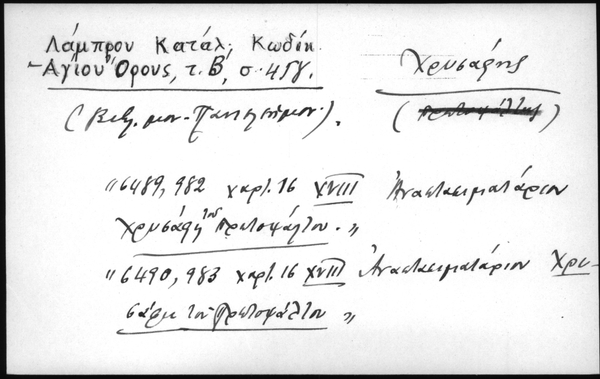 Λάμπρου Κατάλ. Κωδίκ.
Ἁγίου Ὄρους, τ. Β, σ. 458.
Χρυσάφης
(Βιβλ. μον. Παντελεήμον.).
(Πρωτοψάλτης)
"6489, 982 χαρτ. 16 XVIII Ἀναστασιματάριον
Χρυσάφη τοῦ Πρωτοψάλτου. "
"6490, 983 χαρτ. 16 XVIII Ἀναστασιματάριον Χρυ-
σάφη τοῦ Πρωτοψάλτου "